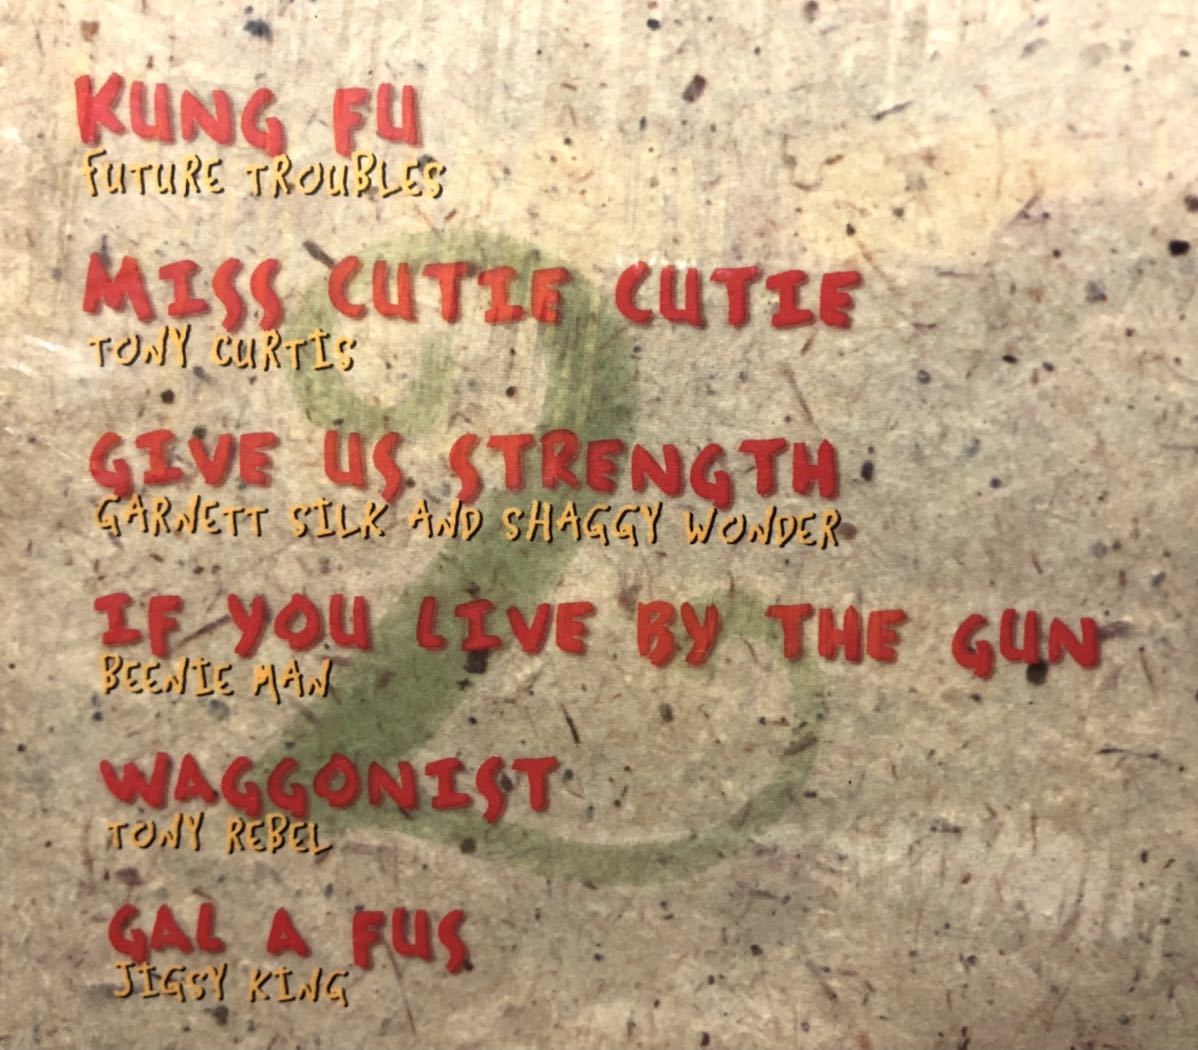 KUNG FU
FUTURE TROUBLES
MISS CUTIE CUTIE
TONY CURTIS
GIVE US STRENGTH
GARNETT SILK AND SHAGGY WONDER
IF YOU LIVE BY THE GUN
BEENIE MAN
WAGGONIST
TONY REBEL
GAL A FUS
JIGSY KING
2